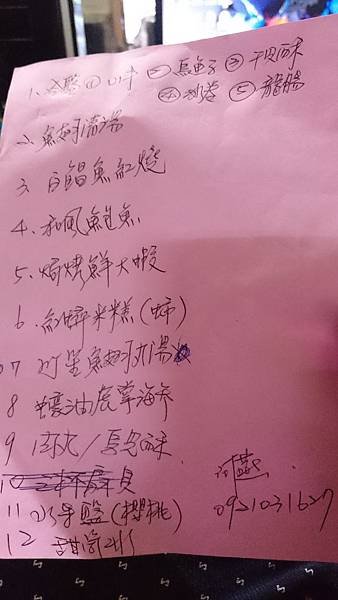 1、冷盤 ① 山手 ② 烏魚子 ③ 干貝酥
④ 沙卷 ⑤ 龍腸
2、魚翅清湯
3、白鯧魚紅燒
4、和風鮑魚
5、焗烤鮮大蝦
6、紅蟳米糕(沛)
07 竹笙魚翅丸湯
8 蠔油虎掌海參
9 丸/烏魚酥
10 貝
11 水果盤(櫻桃)
12 甜筒
0921031627